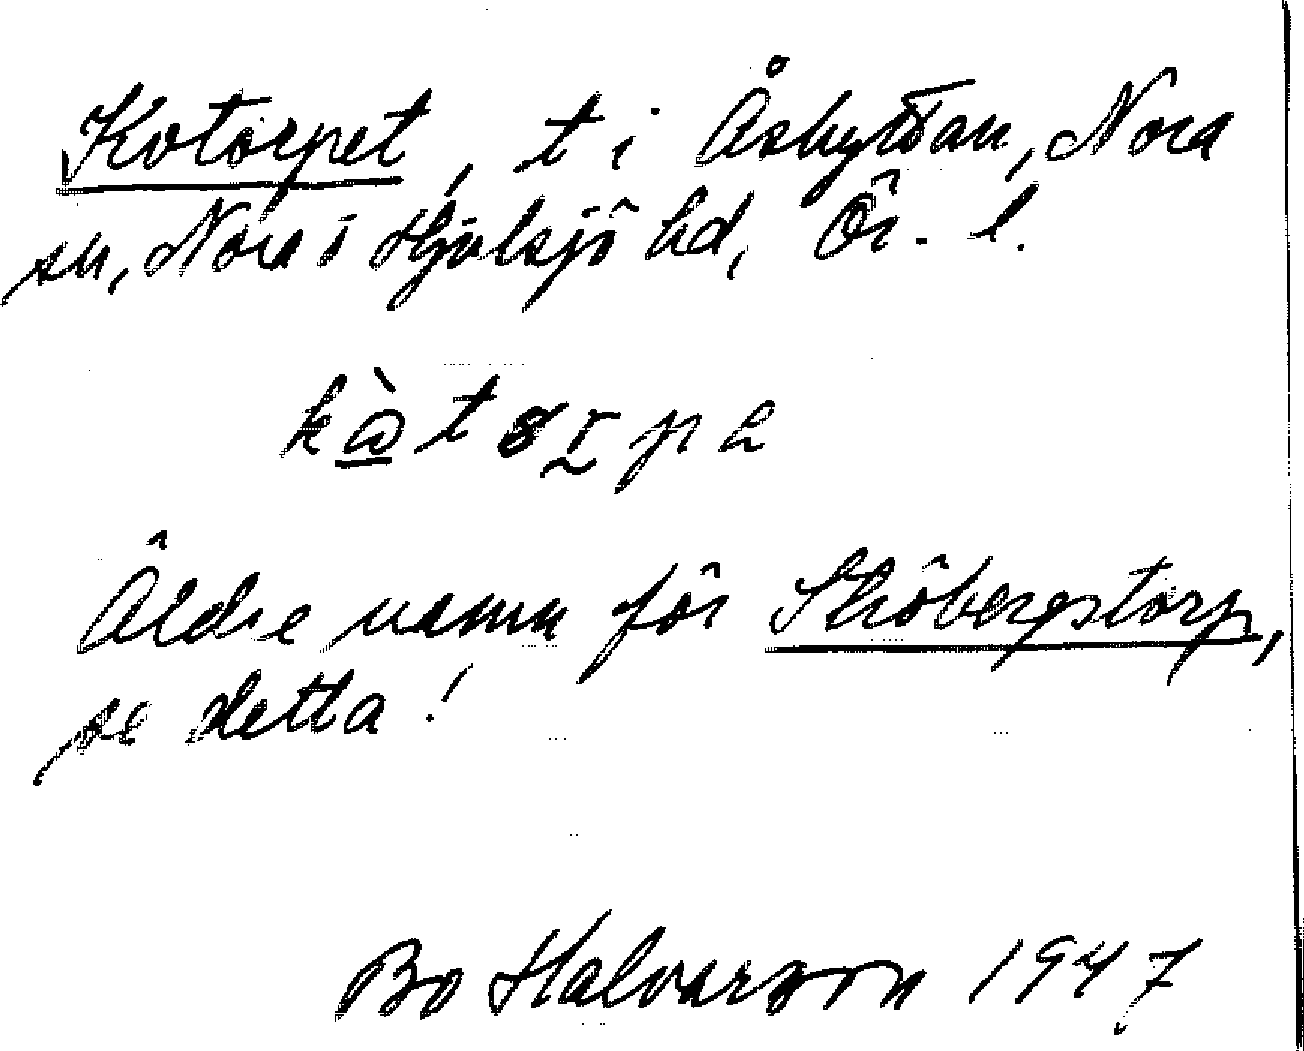 Kotorpet, t i Åsbyttan, Nora
sn, Nora o Hjulsjö hd, Ör. l.
Äldre namn för Ströbergstorp,
se detta!
Bo Halvarson 1947